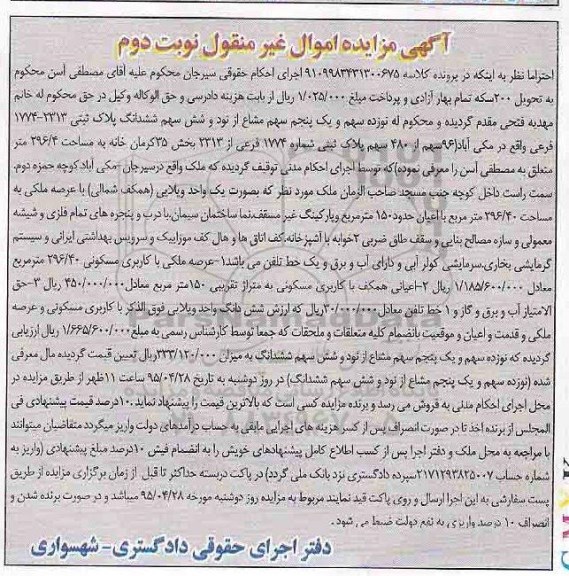 آگهی مزایده اموال غیر منقول نوبت دوم
احتراما نظر به اینکه در پرونده کلاسه ۹۱۰۹۹۸۳۴۳۱۳۰۰۶۷۵ اجرای احکام حقوقی سیرجان محکوم علیه آقای مصطفی آسن محکوم
به تحویل ۲۰۰سکه تمام بهار آزادی و پرداخت مبلغ ۱/۰۲۵/۰۰۰ ریال از بابت هزینه دادرسی و حق الوکاله وکیل در حق محکوم له خانم
مهدیه فتحی مقدم گردیده و محکوم له نوزده سهم و یک پنجم سهم مشاع از نود و شش سهم ششدانگ پلاک ثبتی ۲۳۱۳-۱۷۷۴
فرعی واقع در مکی آباد(۹۶سهم از ۴۸۰ سهم پلاک ثبتی شماره ۱۷۷۴ فرعی از ۲۳۱۳ بخش ۳۵کرمان خانه به مساحت ۳۹۶/۴ متر
متعلق به مصطفی آسن را معرفی نموده)که توسط اجرای احکام مدنی توقیف گردیده که ملک واقع درسیرجان-مکی آباد کوچه حمزه دوم،
سمت راست داخل کوچه جنب مسجد صاحب الزمان ملک مورد نظر که بصورت یک واحد ویلایی (همکف شمالی) با عرصه ملکی به
مساحت ۳۹۶/۴۰ متر مربع با اعیان حدود۱۵۰ مترمربع وپارکینگ غیر مسقف،نما ساختمان سیمان،با درب و پنجره های تمام فلزی و شیشه
معمولی و سازه مصالح بنایی و سقف طاق ضربی ۲خوابه با آشپزخانه،کف اتاق ها و هال کف موزاییک و سرویس بهداشتی ایرانی و سیستم
گرمایشی بخاری،سرمایشی کولر آبی و دارای آب و برق و یک خط تلفن می باشد۱-عرصه ملکی با کاربری مسکونی ۳۹۶/۴۰ مترمربع
معادل ۱/۱۸۵/۶۰۰/۰۰۰ ریال ۲-اعیانی همکف با کاربری مسکونی به متراژ تقریبی ۱۵۰متر مربع معادل۴۵۰/۰۰۰/۰۰۰ ریال ۳-حق
الامتیاز آب و برق و گاز و ۱ خط تلفن معادل۳۰/۰۰۰/۰۰۰ریال که ارزش شش دانگ واحد ویلایی فوق الذکر با کاربری مسکونی و عرصه
ملکی و قدمت و اعیان و موقعیت بانضمام کلیه متعلقات و ملحقات که جمعا توسط کارشناس رسمی به مبلغ۱/۶۶۵/۶۰۰/۰۰۰ ریال ارزیابی
گردیده که نوزده سهم و یک پنجم سهم مشاع از نود و شش سهم ششدانگ به میزان ۳۳۳/۱۲۰/۰۰۰ریال تعیین قیمت گردیده مال معرفی
شده (نوزده سهم و یک پنجم مشاع از نود و شش سهم ششدانگ) در روز دوشنبه به تاریخ ۹۵/۰۴/۲۸ ساعت ۱۱ظهر از طریق مزایده در
محل اجرای احکام مدنی به فروش می رسد و برنده مزایده کسی است که بالاترین قیمت را پیشنهاد نماید.۱۰درصد قیمت پیشنهادی فی
المجلس از برنده اخذ تا در صورت انصراف پس از کسر هزینه های اجرایی مابقی به حساب درآمدهای دولت واریز میگردد متقاضیان میتوانند
با مراجعه به محل ملک و دفتر اجرا پس از کسب اطلاع کامل پیشنهادهای خویش را به انضمام فیش ۱۰درصد مبلغ پیشنهادی (واریز به
شماره حساب ۲۱۷۱۲۹۳۸۲۵۰۰۷سپرده دادگستری نزد بانک ملی گردد) در پاکت دربسته حداکثر تا قبل از زمان برگزاری مزایده از طریق
پست سفارشی به این اجرا ارسال و روی پاکت قید نمایند مربوط به مزایده روز دوشنبه مورخه ۹۵/۰۴/۲۸ میباشد و در صورت برنده شدن و
انصراف ۱۰ درصد واریزی به نفع دولت ضبط می شود.
دفتر اجرای حقوقی دادگستری- شهسواری